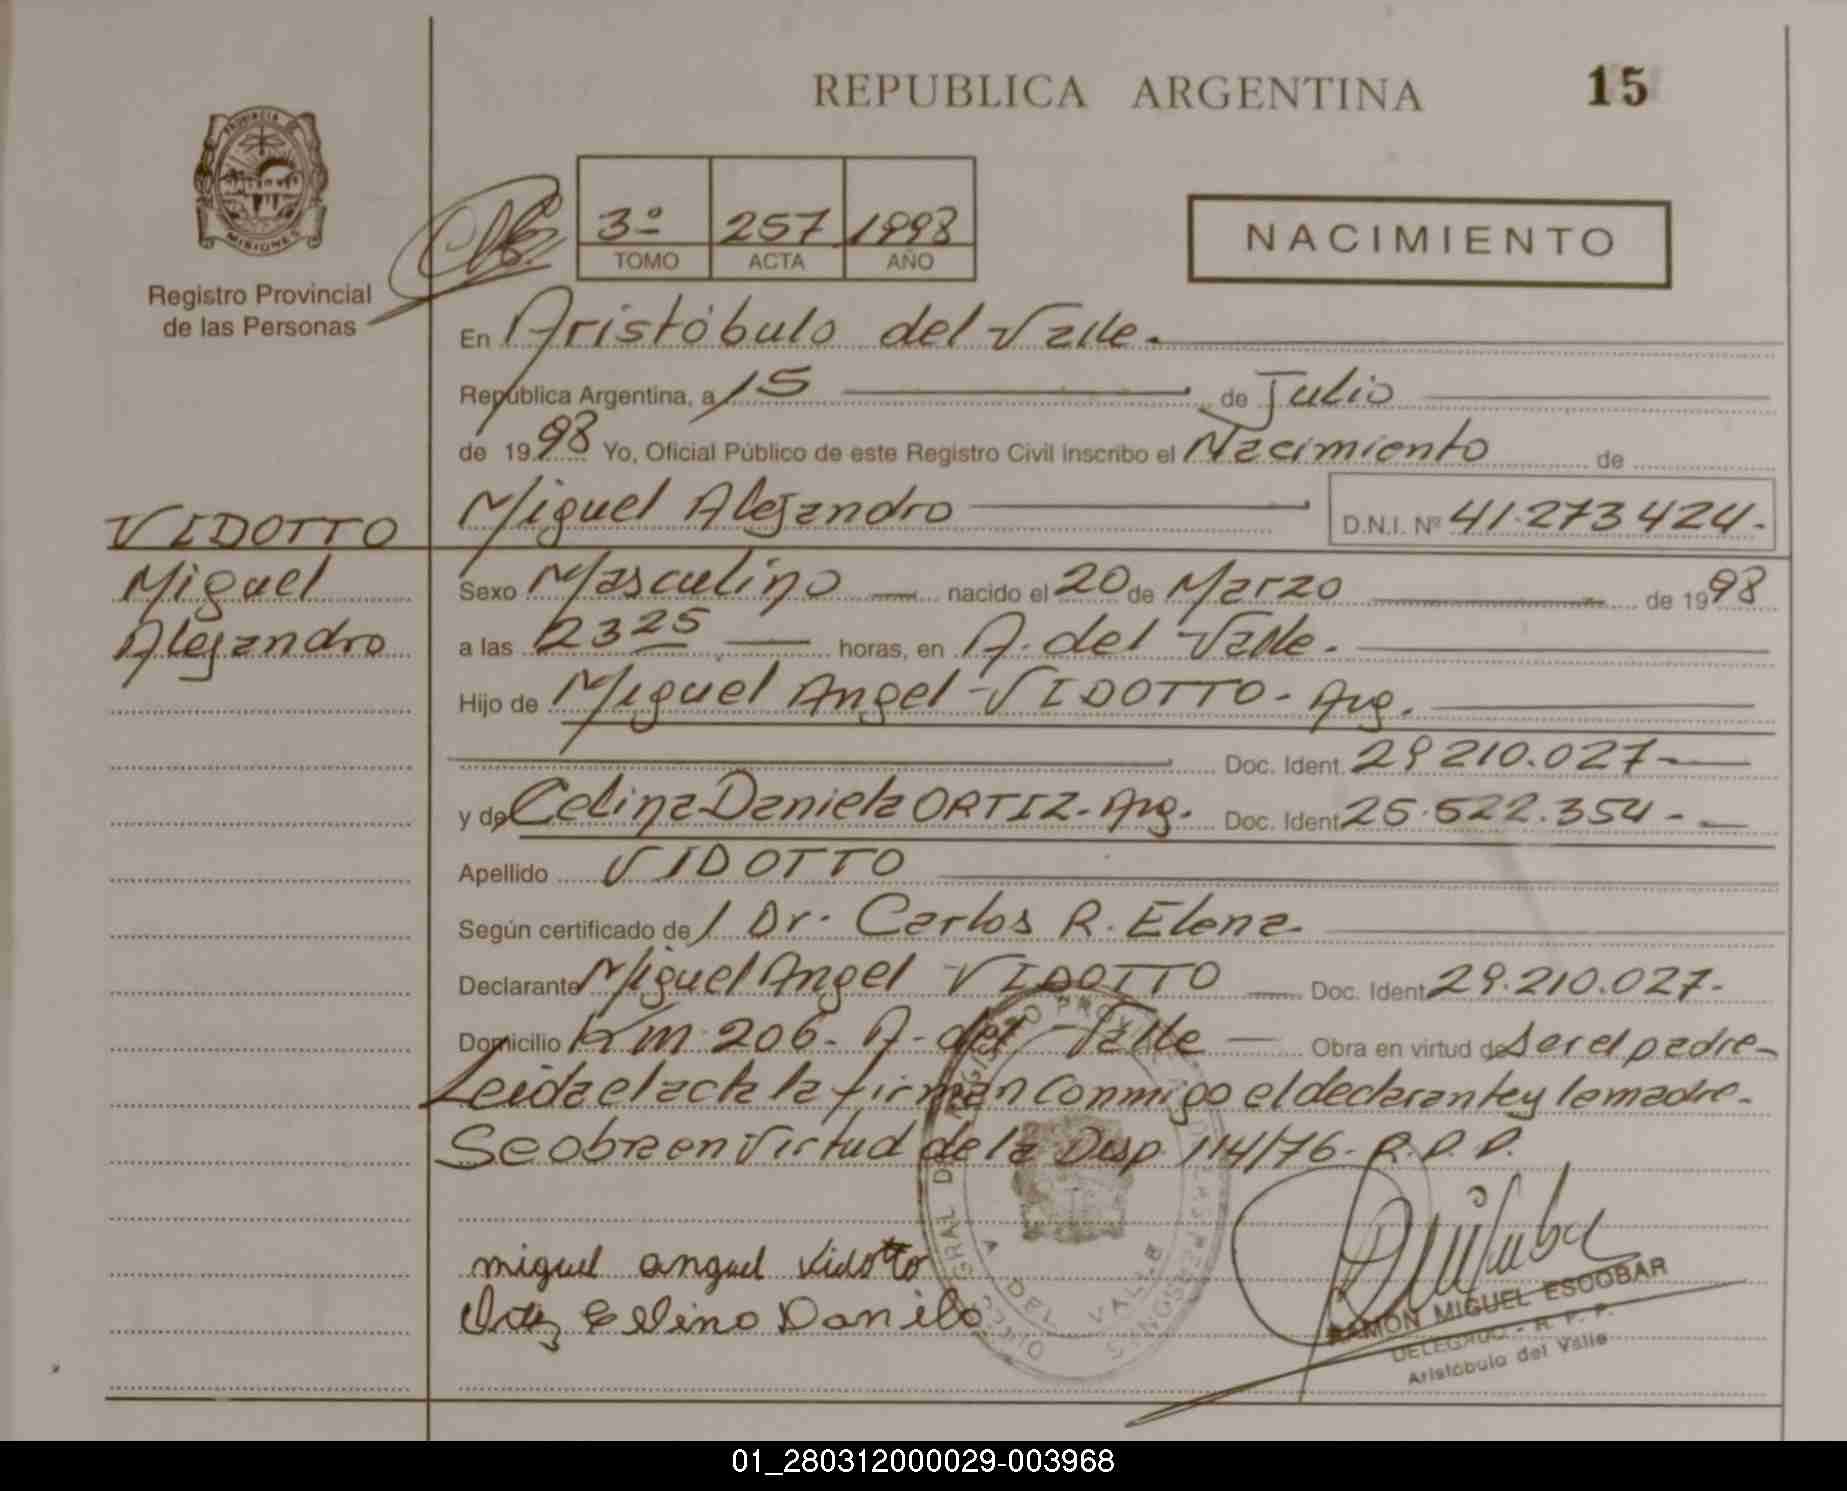 REPUBLICA ARGENTINA
15
PROVINCIA DE
MISIONES
Registro Provincial
de las Personas
3º 257 1998
TOMO ACTA AÑO
NACIMIENTO
En Aristóbulo del Valle.
República Argentina, a 15 de Julio
de 1998 Yo, Oficial Público de este Registro Civil inscribo el Nacimiento de
Miguel Alejandro D.N.I. Nº 41.273 424.
VIDOTTO
Miguel
Alejandro
Sexo Masculino nacido el 20 de Marzo de 1998
a las 23 25 horas, en A. del Valle.
Hijo de Miguel Angel VIDOTTO - Arg.
Doc. Ident. 29 210.027-
y de Celina Daniela ORTIZ - Arg. Doc. Ident. 25.522.354-
Apellido VIDOTTO
Según certificado de / Dr. Carlos R. Elena
Declarante Miguel Angel VIDOTTO Doc. Ident. 29.210.027.
Domicilio Km 206. A. del Valle Obra en virtud de ser el padre-
Leida el acta la firman conmigo el declarante y la madre.
Se obra en virtud de la Disp. 114/76. R.P.P.
miguel anguel vidotto
Celina Danila
A DEL VALLE
RAMON MIGUEL ESCOBAR
DELEGADO - R. P. P.
Aristóbulo del Valle
01_280312000029-003968